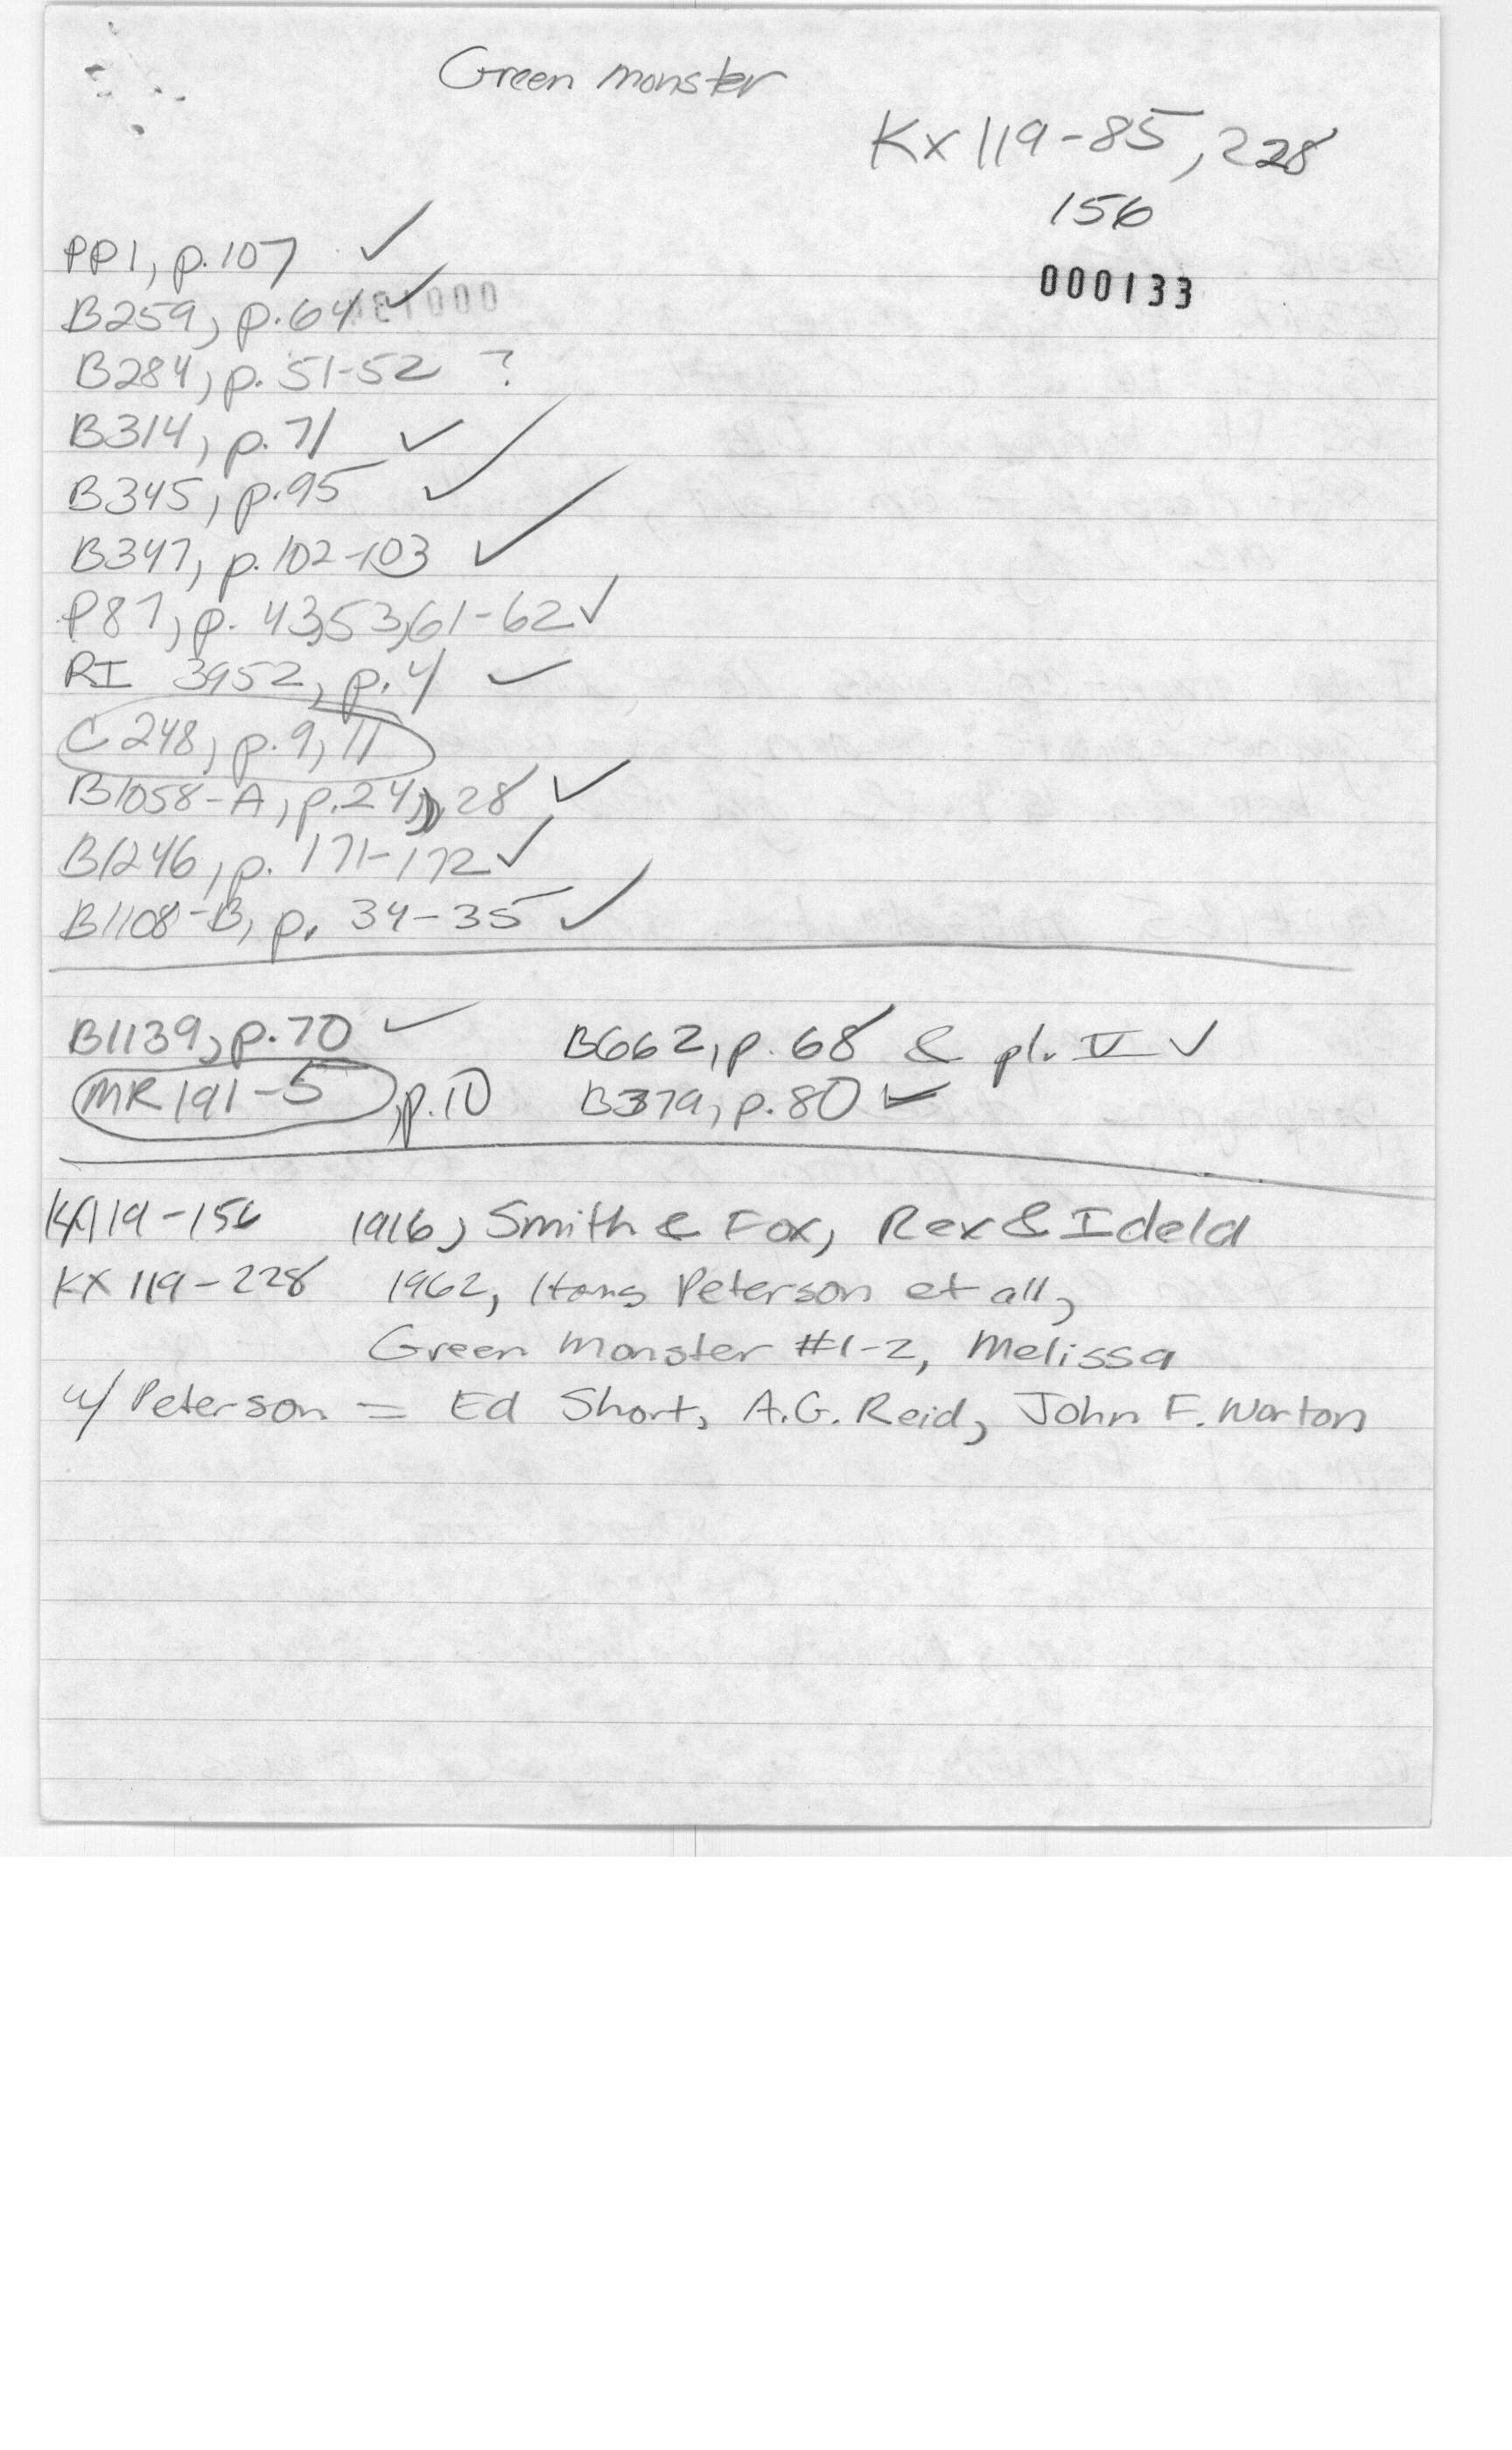 Green monster
Kx 119-85, 228
156
000133
PP1, p.107 ✓
B259, p.64 ✓
B284, p. 51-52 ?
B314, p. 71 ✓
B345, p.95 ✓
B347, p.102-103 ✓
P87, p. 43,53,61-62 ✓
RI 3952, p.4 ✓
C 248, p.9, 11
B1058-A, p.24, 28 ✓
B1246, p. 171-172 ✓
B1108-B, p. 34-35 ✓
B1139, p.70 ✓ B662, p. 68 & pl. V ✓
MR 191-5, p.10 B379, p.80 ✓
KX119-156 1916, Smith & Fox, Rex & Idela
KX 119-228 1962, Hans Peterson et all,
Green Monster #1-2, Melissa
w/ Peterson = Ed Short, A.G. Reid, John F. Warton